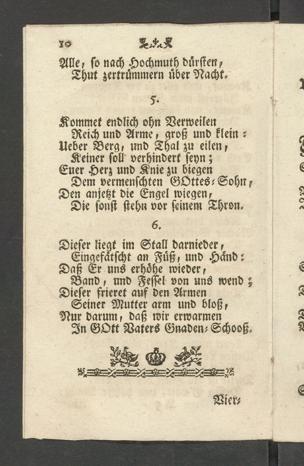 10
Alle, so nach Hochmuth dürsten,
Thut zertrümmern über Nacht.
5.
Kommet endlich ohn Verweilen
Reich und Arme, groß und klein:
Ueber Berg, und Thal zu eilen,
Keiner soll verhindert seyn;
Euer Herz und Knie zu biegen
Dem vermenschten GOttes-Sohn,
Den anjetzt die Engel wiegen,
Die sonst stehn vor seinem Thron.
6.
Dieser liegt im Stall darnieder,
Eingefätscht an Füß, und Händ:
Daß Er uns erhöhe wieder,
Band, und Fessel von uns wend;
Dieser frieret auf den Armen
Seiner Mutter arm und bloß,
Nur darum, daß wir erwarmen
In GOtt Vaters Gnaden-Schooß.
Vier-